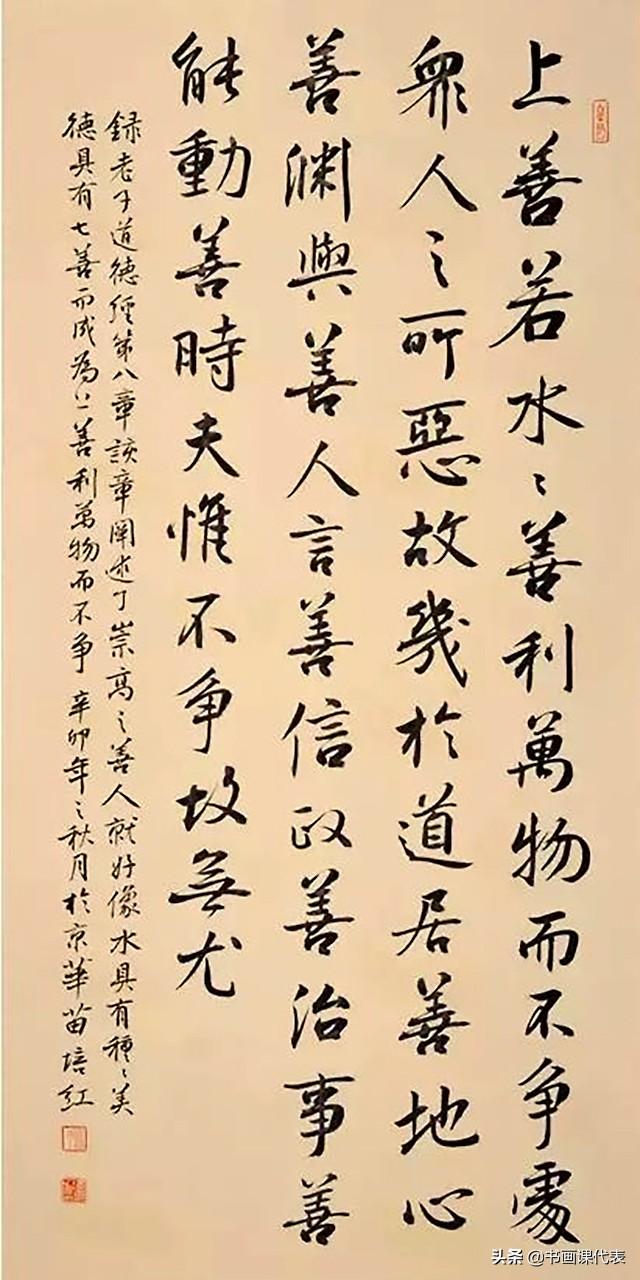 上善若水〻善利萬物而不争處
衆人之所惡故幾於道居善地心
善渊與善人言善信政善治事善
能動善時夫惟不争故無尤
録老子道德經第八章該章闡述了崇高之善人就好像水具有種〻美
德具有七善而成為上善利萬物而不争 辛卯年之秋月於京華苗培紅
头条 @书画课代表